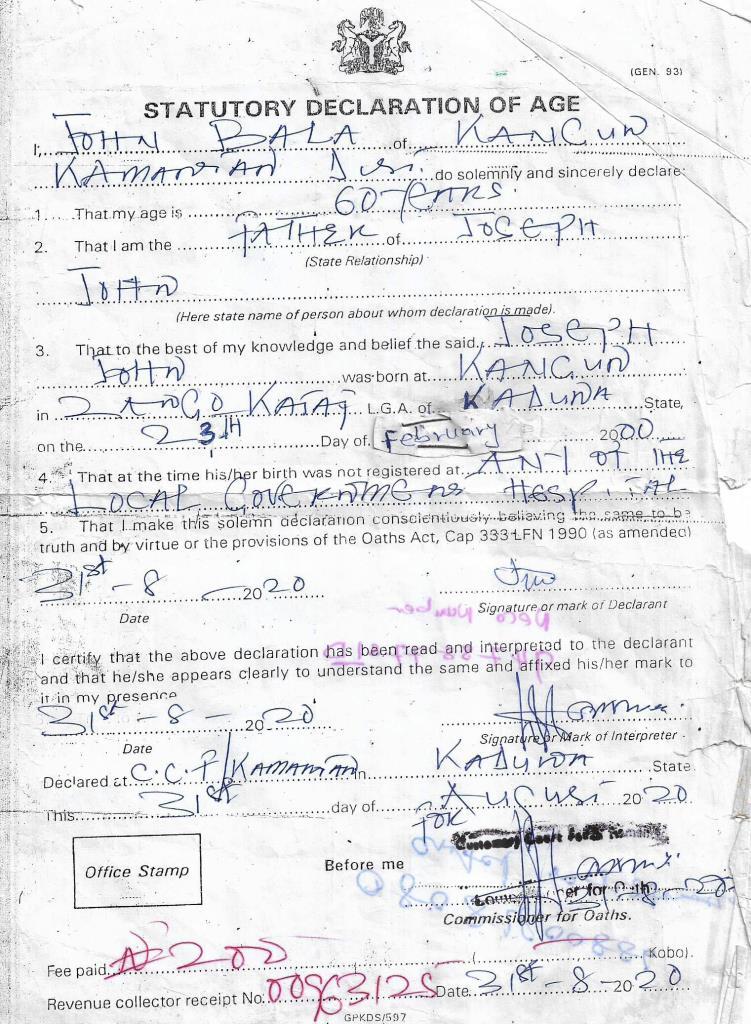 (GEN. 93)
STATUTORY DECLARATION OF AGE
I, JOHN BALA of KANGUN
KAMANTAN do solemnly and sincerely declare:
1. That my age is 60 YEARS.
2. That I am the FATHER of JOSEPH
(State Relationship)
JOHN
(Here state name of person about whom declaration is made).
3. That to the best of my knowledge and belief the said JOSEPH
JOHN was born at KANGUN
in ZANGO KATAF L.G.A. of KADUNA State,
on the 23TH Day of February 2000
4. That at the time his/her birth was not registered at ANY OF THE
LOCAL GOVERNMENT HOSPITAL
5. That I make this solemn declaration conscientiously believing the same to be
truth and by virtue or the provisions of the Oaths Act, Cap 333 LFN 1990 (as amended)
31st - 8 - 2020
Date
Signature or mark of Declarant
Neco number
I certify that the above declaration has been read and interpreted to the declarant
and that he/she appears clearly to understand the same and affixed his/her mark to
it in my presence
31st - 8 - 2020
Date
Signature or Mark of Interpreter
Declared at C.C.F/KAMANTAN in KADUNA State
This 31st day of AUGUST 2020
FOR
Customary Court
Office Stamp
Before me
for Oath
Commissioner for Oaths.
Fee paid ₦200 ( Kobo).
Revenue collector receipt No. 00963125 Date 31st - 8 - 2020
GPKDS/597